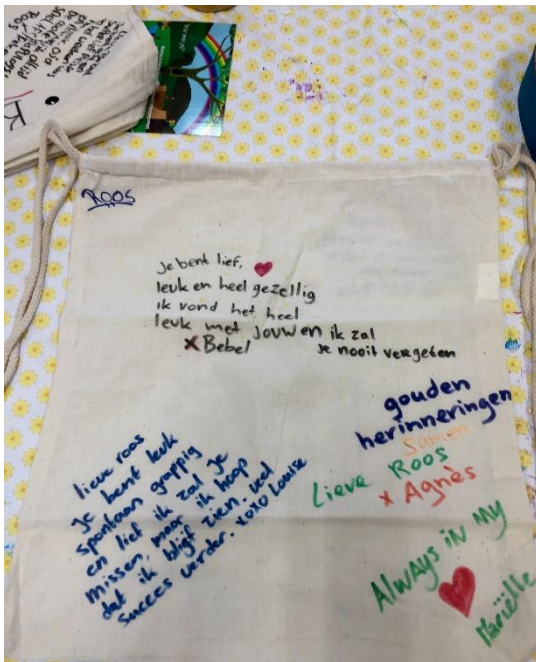 ROOS
Je bent lief,
leuk en heel gezellig
ik vond het heel
leuk met jouw en ik zal
je nooit vergeten
x Bebel
gouden
herinneringen
Samen
Lieve Roos
x Agnès
lieve roos
Je bent leuk
spontaan grappig
en lief ik zal je
missen, maar ik hoop
dat ik blijft zien. veel
succes verder. xoxo Louise
Always in my
Mariëlle